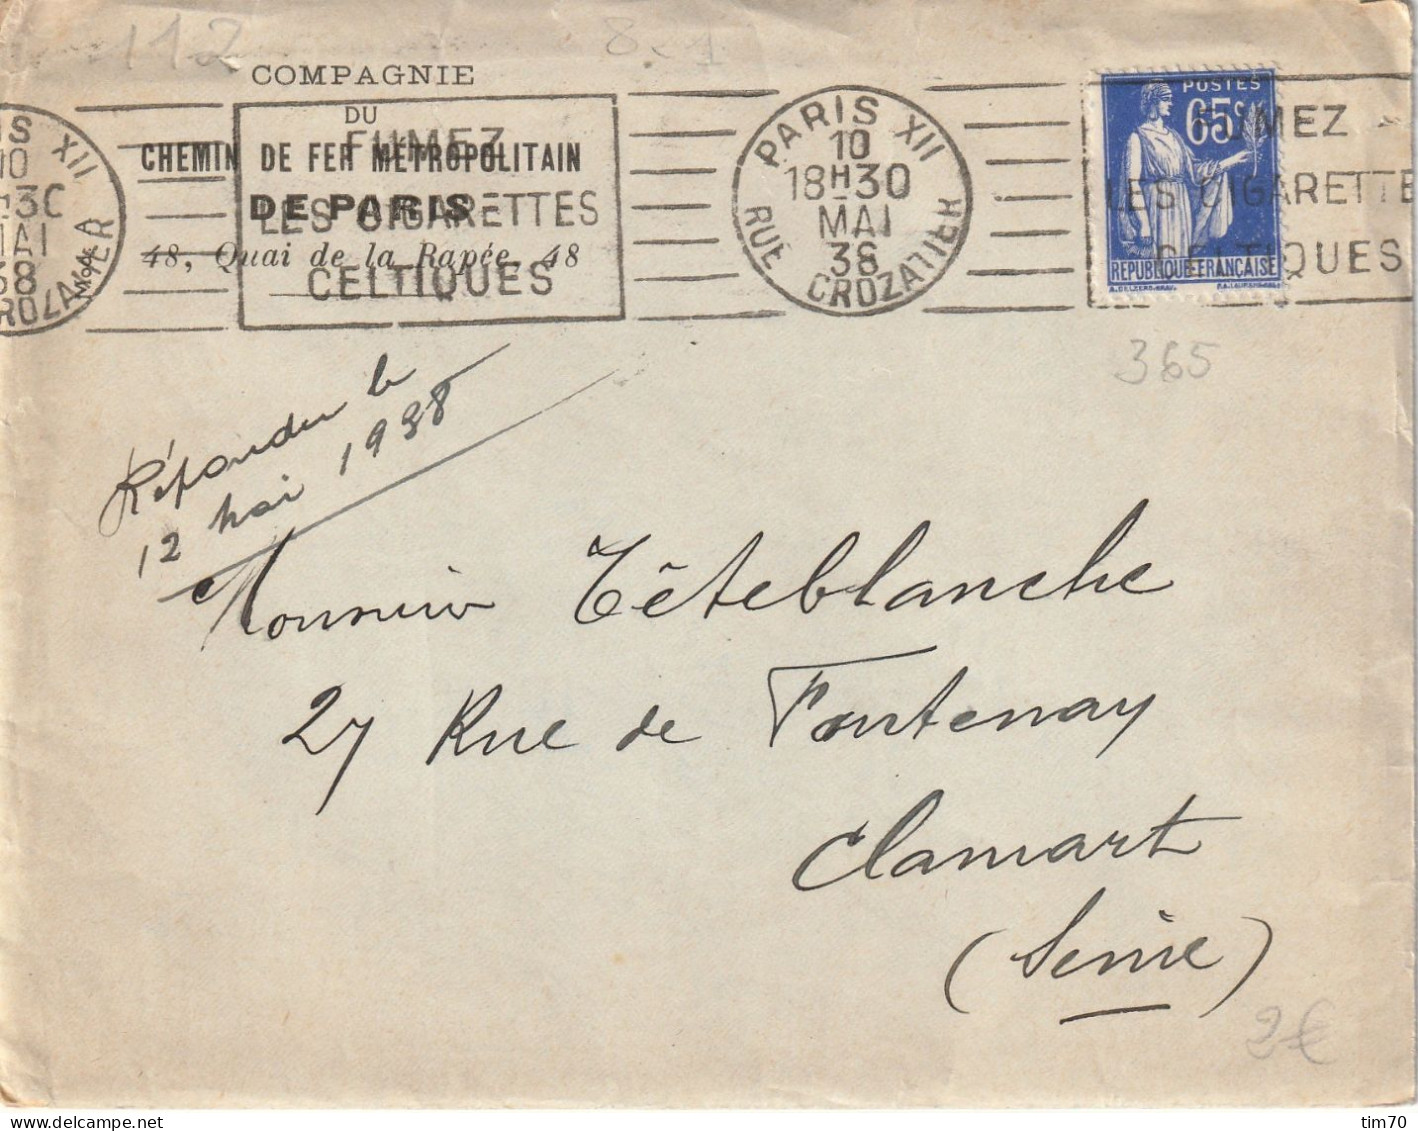 112
8.1
COMPAGNIE
DU
CHEMIN DE FER METROPOLITAIN
DE PARIS
48, Quai de la Rapée, 48
FUMEZ
LES CIGARETTES
CELTIQUES
PARIS XII
10
18H30
MAI
38
RUE CROZATIER
POSTES
65c
RÉPUBLIQUE FRANÇAISE
FUMEZ
LES CIGARETTE
CELTIQUES
365
Répondu le
12 Mai 1938
Monsieur Têteblanche
27 Rue de Fontenay
Clamart
(Seine)
2€
delcampe.net
tim70